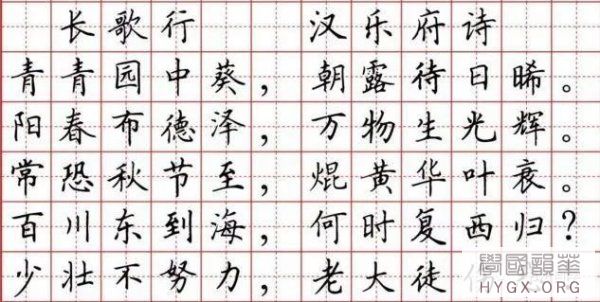 长歌行 汉乐府诗
青青园中葵，朝露待日晞。
阳春布德泽，万物生光辉。
常恐秋节至，焜黄华叶衰。
百川东到海，何时复西归？
少壮不努力，老大徒
學國韻華
HYGX.ORG